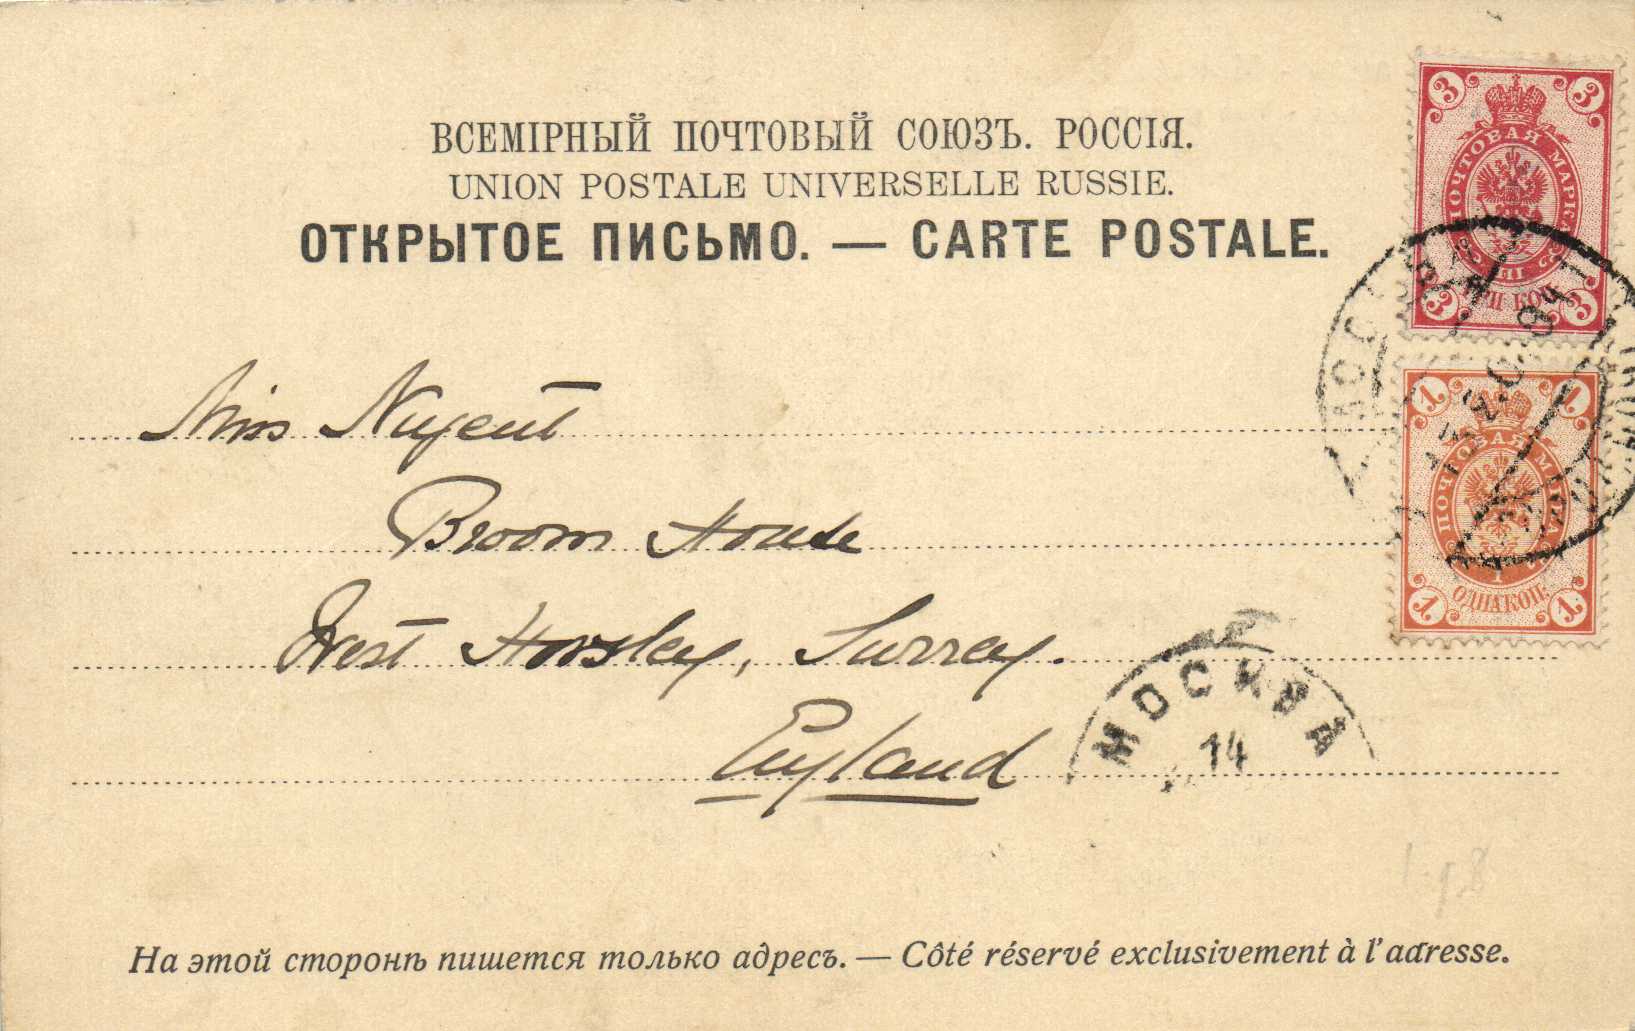 ВСЕМІРНЫЙ ПОЧТОВЫЙ СОЮЗЪ. РОССІЯ.
UNION POSTALE UNIVERSELLE RUSSIE.
ОТКРЫТОЕ ПИСЬМО. — CARTE POSTALE.
3 3
ПОЧТОВАЯ МАРКА
3 ТРИ КОП. 3
1 1
ПОЧТОВАЯ МАРКА
1 ОДНА КОП. 1
Miss Nugent
Broom House
West Horsley, Surrey.
England
МОСКВА
14
На этой сторонѣ пишется только адресъ. — Côté réservé exclusivement à l'adresse.